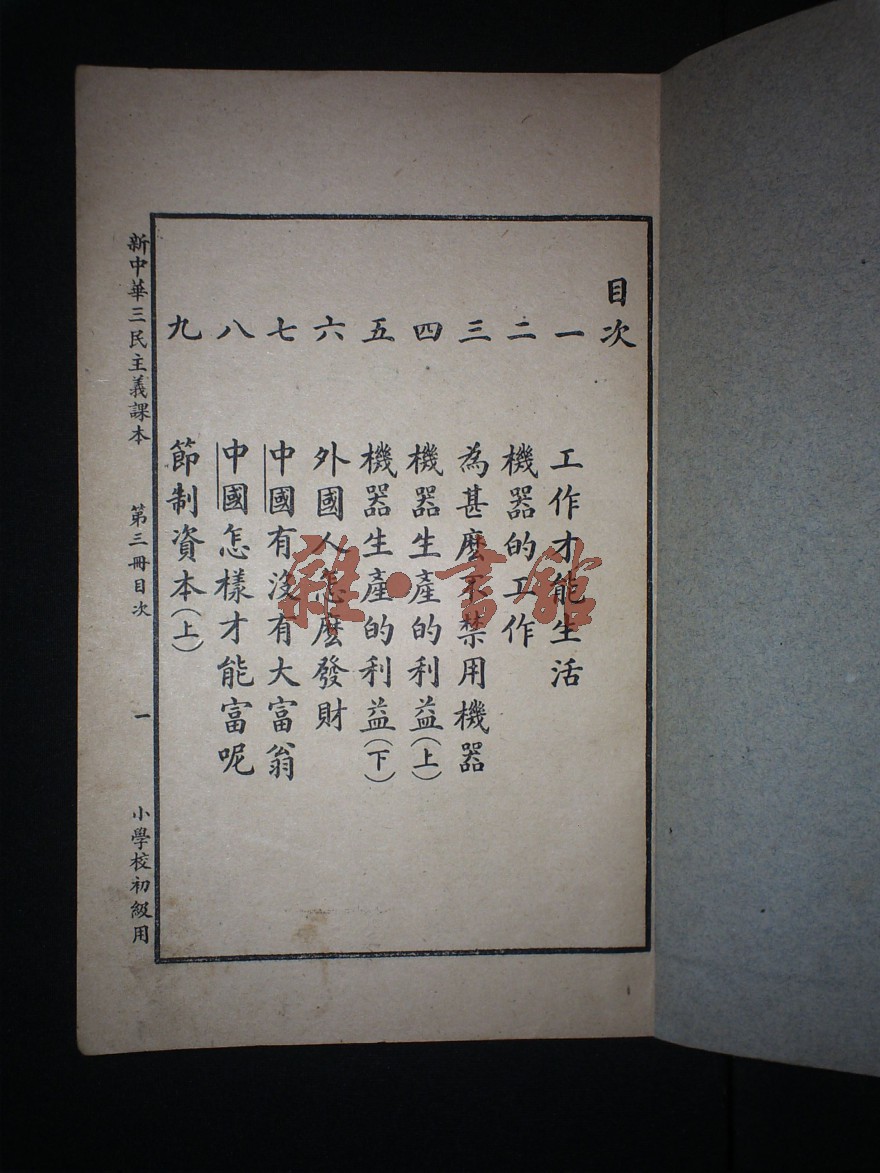 目次
一 工作才能生活
二 機器的工作
三 為甚麼不禁用機器
四 機器生產的利益(上)
五 機器生產的利益(下)
六 外國人怎麼發財
七 中國有沒有大富翁
八 中國怎樣才能富呢
九 節制資本(上)
新中華三民主義課本 第三冊目次 一 小學校初級用
雜·書館